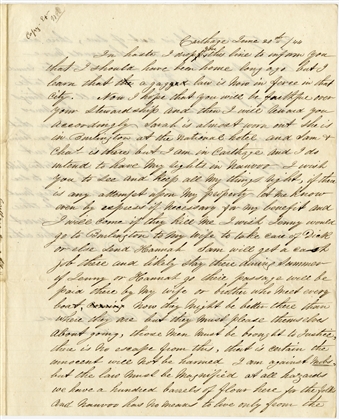 Copy to
Carthage June 20th/44
In haste I drop this line to inform you
that I should have been home long ago but I
learn that a jagged law is now in force in that
city. Now I hope that you will be faithful over
your Stewardship and then I will award you
accordingly Sarah is almost worn out She is
in Burlington at the National hotel and Sam &
Charl is there but I am in Carthage and I do
intend to have my rights in Nauvoo I wish
you to see and keep all my things right, if there
is any attempt upon my property let me know
even by express if necessary for my benefit and
I will come if they kill me I wish Jenny would
go to Burlington to my wife to take care of Dick
or else send Hannah Sam will get a
job there and likely stay there during summer
if Jenny or Hannah go there passage will be
paid there by my wife or brother who meet every
boat, now they might be better there than
where they are but they must please themselves
about going, those men must be brought to Justice,
there is no escape from this, that is certain the
innocent will not be harmed I am against Mobs
but the law must be magnified at all hazards
we have a hundred barrels of flour here for the folks
and Nauvoo has no means to live only from the